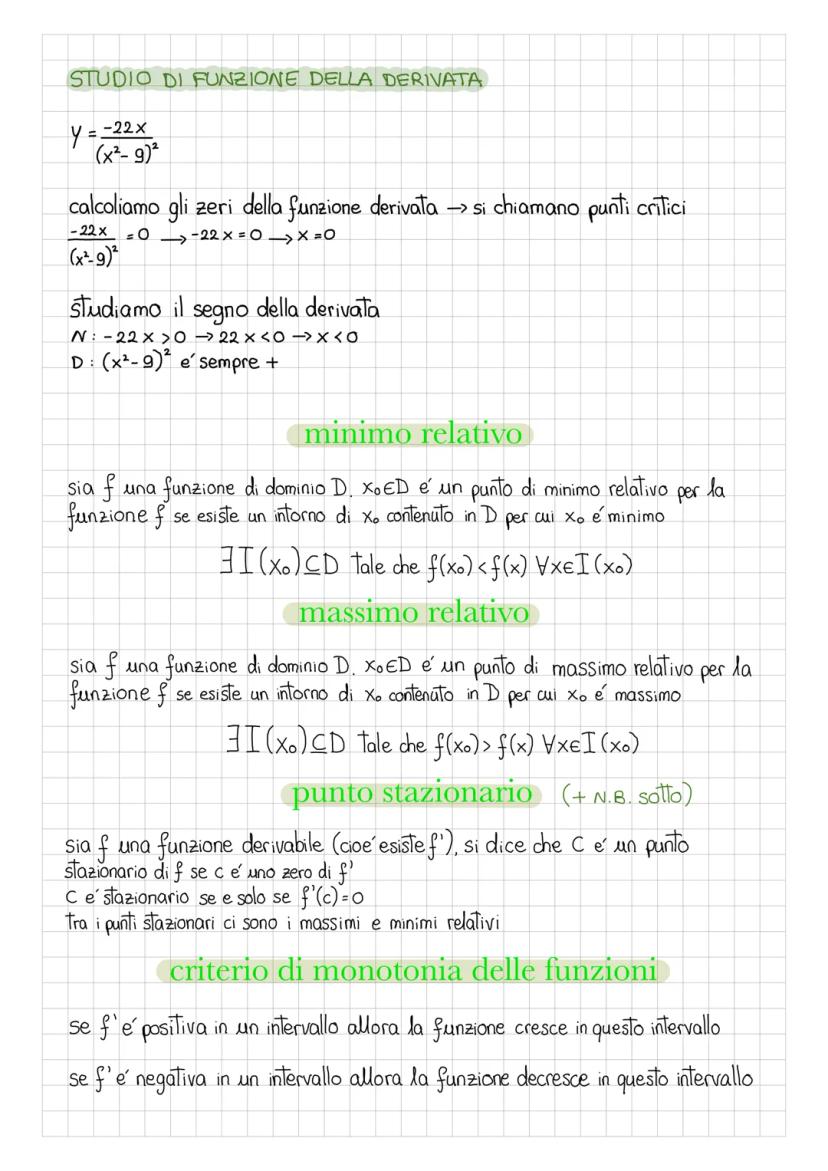 STUDIO DI FUNZIONE DELLA DERIVATA
y = -22x / (x²-9)²
calcoliamo gli zeri della funzione derivata → si chiamano punti critici
-22x / (x²-9)² = 0 → -22x = 0 → x = 0
studiamo il segno della derivata
N: -22x > 0 → 22x < 0 → x < 0
D: (x²-9)² e' sempre +
minimo relativo
sia f una funzione di dominio D. x₀∈D e' un punto di minimo relativo per la
funzione f se esiste un intorno di x₀ contenuto in D per cui x₀ e' minimo
∃I(x₀)⊆D tale che f(x₀)<f(x) ∀x∈I(x₀)
massimo relativo
sia f una funzione di dominio D. x₀∈D e' un punto di massimo relativo per la
funzione f se esiste un intorno di x₀ contenuto in D per cui x₀ e' massimo
∃I(x₀)⊆D tale che f(x₀)>f(x) ∀x∈I(x₀)
punto stazionario (+ N.B. sotto)
sia f una funzione derivabile (cioe' esiste f'), si dice che C e' un punto
stazionario di f se c e' uno zero di f'
C e' stazionario se e solo se f'(c)=0
tra i punti stazionari ci sono i massimi e minimi relativi
criterio di monotonia delle funzioni
se f' e' positiva in un intervallo allora la funzione cresce in questo intervallo
se f' e' negativa in un intervallo allora la funzione decresce in questo intervallo